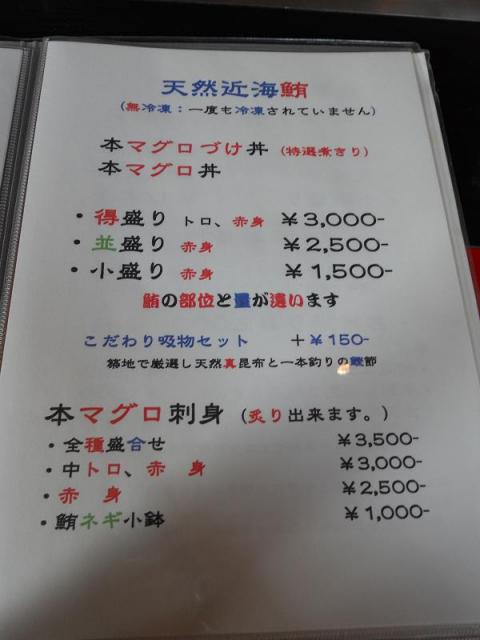 天然近海鮪
(無冷凍：一度も冷凍されていません)
本マグロづけ丼 (特選煮きり)
本マグロ丼
・得盛り トロ、赤身 ￥3,000-
・並盛り 赤身 ￥2,500-
・小盛り 赤身 ￥1,500-
鮪の部位と量が違います
こだわり吸物セット ＋￥150-
築地で厳選し天然真昆布と一本釣りの鰹節
本マグロ刺身 (炙り出来ます。)
・全種盛合せ ￥3,500-
・中トロ、赤　身 ￥3,000-
・赤　身 ￥2,500-
・鮪ネギ小鉢 ￥1,000-